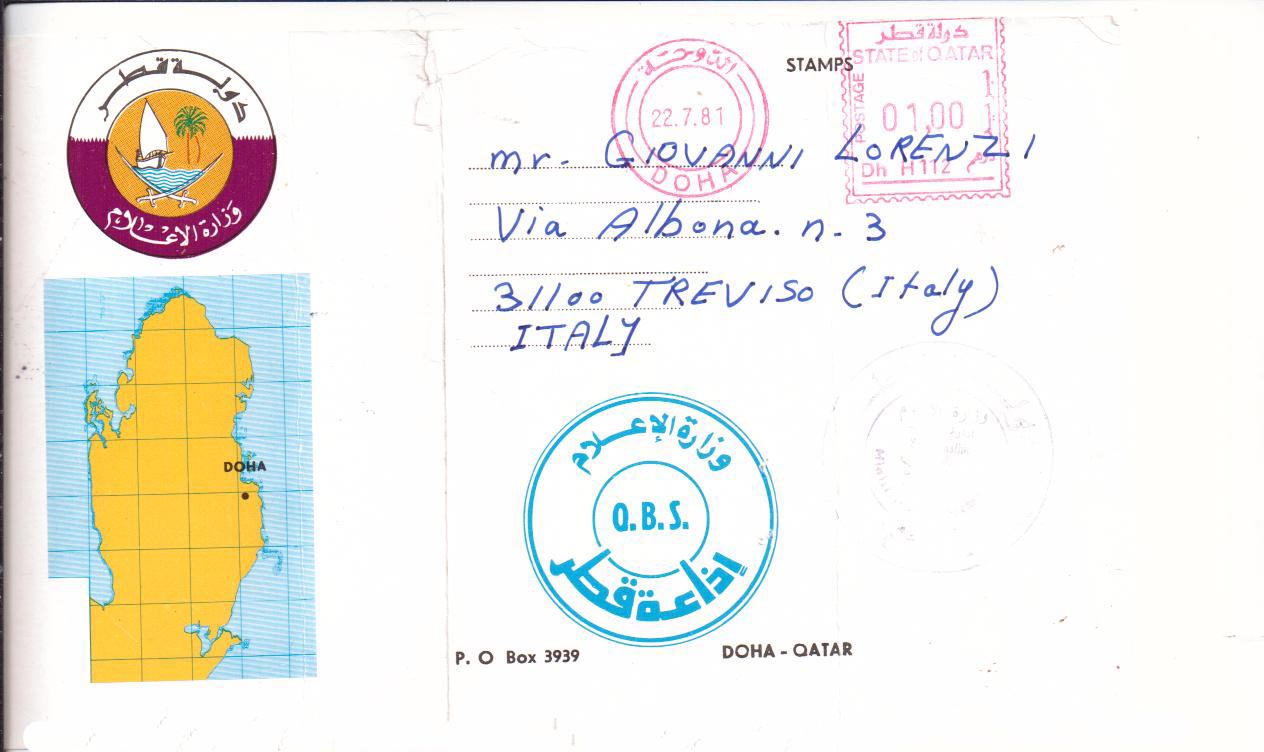 دولة قطر
وزارة الإعلام
DOHA
الدوحة
22.7.81
DOHA
STAMPS
دولة قطر
STATE of QATAR
POSTAGE
01,00
Dh H112 درهم
mr. GIOVANNI LORENZI
Via Albona. n. 3
31100 TREVISO (Italy)
ITALY
وزارة الإعلام
Q.B.S.
إذاعة قطر
P. O Box 3939
DOHA - QATAR